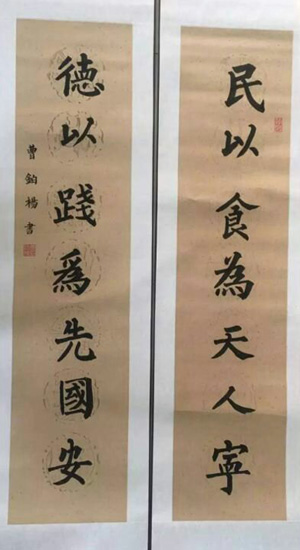 民以食為天人寧
德以踐爲先國安
曹鈞楊書